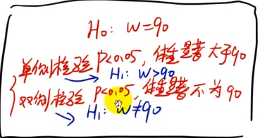 H₀: W=90
单侧检验 P<0.05, 体重显著大于90
→ H₁: W>90
双侧检验 P<0.05, 体重显著不为90
→ H₁: W≠90